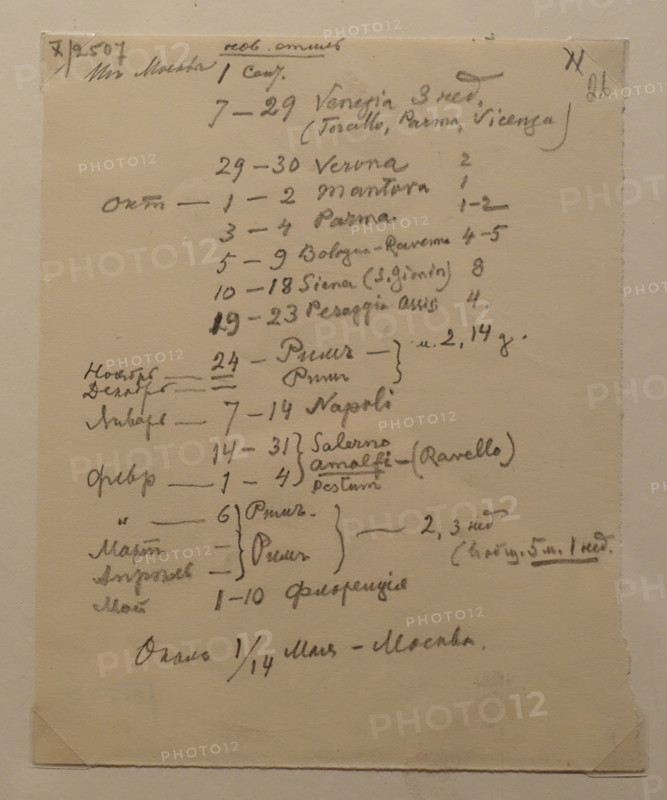 X/2507
нов. стиль
N
26
Изъ Москвы 1 Сент.
7 – 29 Venezia 3 нед.
(Torcello, Parma, Vicenza)
29 – 30 Verona 2
Окт — 1 – 2 Mantova 1
3 – 4 Parma 1-2
5 – 9 Bologna-Ravenna 4-5
10 – 18 Siena (S. Gimin) 8
19 – 23 Perugia Assisi 4
24 – Римъ – м. 2, 14 д.
Ноябрь —
Декабрь — Римъ
Январь — 7 – 14 Napoli
14 – 31 Salerno
Amalfi – (Ravello)
Февр — 1 – 4 Pestum
" — 6 Римъ – 2, 3 нед
Мартъ — Римъ
(Вобщ. 5 м. 1 нед.
Апрѣль —
Май 1-10 Флоренція
Около 1/14 Мая – Москва.
PHOTO12